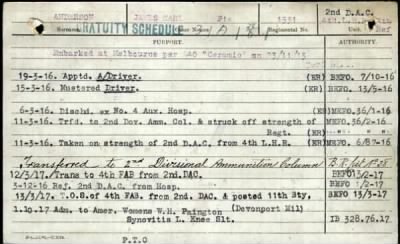 ANDERSON JAMES Pte 1551 2nd D.A.C.
GRATUITY SCHEDULE
Regimental No.
PURPORT.
Embarked at Melbourne per HAO "Ceramic" on 23/11/15
19-3-16. Apptd. A/Driver. (ER) BEFO. 7/10-16
15-3-16. Mustered Driver. BEFO. 13/5-16
6-3-16. Dischd. ex No. 4 Aux. Hosp. (ER) MEFO. 36/1-16
11-3-16. Trfd. to 2nd Dov. Ammn. Col. & struck off strength of Regt. (ER) MEFO. 36/2-16
11-3-16. Taken on strength of 2nd D.A.C. from 4th L.H.R. (ER) MEFO. 6/87-16
Transferred to 2nd Divisional Ammunition Column
12/3/17. Trans to 4th FAB from 2nd. DAC. BEFO 13/3-17
3-12-16 Rej. 2nd D.A.C. from Hosp. BEFO 1/2-17
13/3/17. T.O.S. of 4th FAB. from 2nd. DAC. & posted 11th Bty. BEFO 13/3-17
1.10.17 Adm. to Amer. Womens W.H. Paington (Devonport Mil)
Synovitis L. Knee Slt. IB 328.76.17
P.T.O